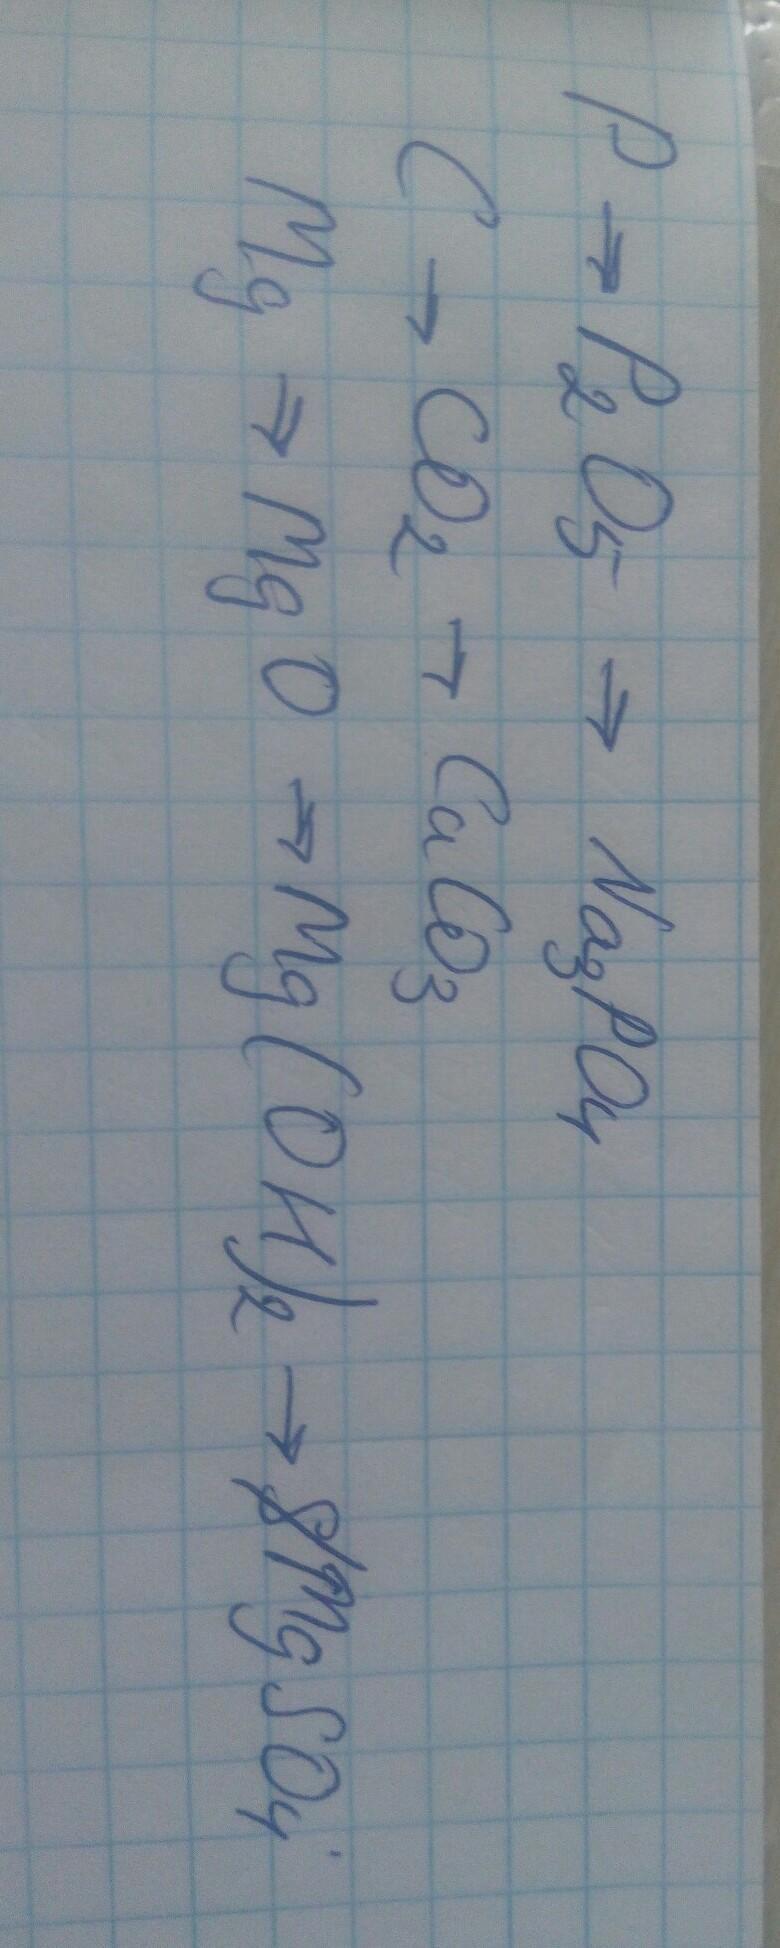 P → P₂O₅ → Na₃PO₄
C → CO₂ → CaCO₃
Mg → MgO → Mg(OH)₂ → MgSO₄.